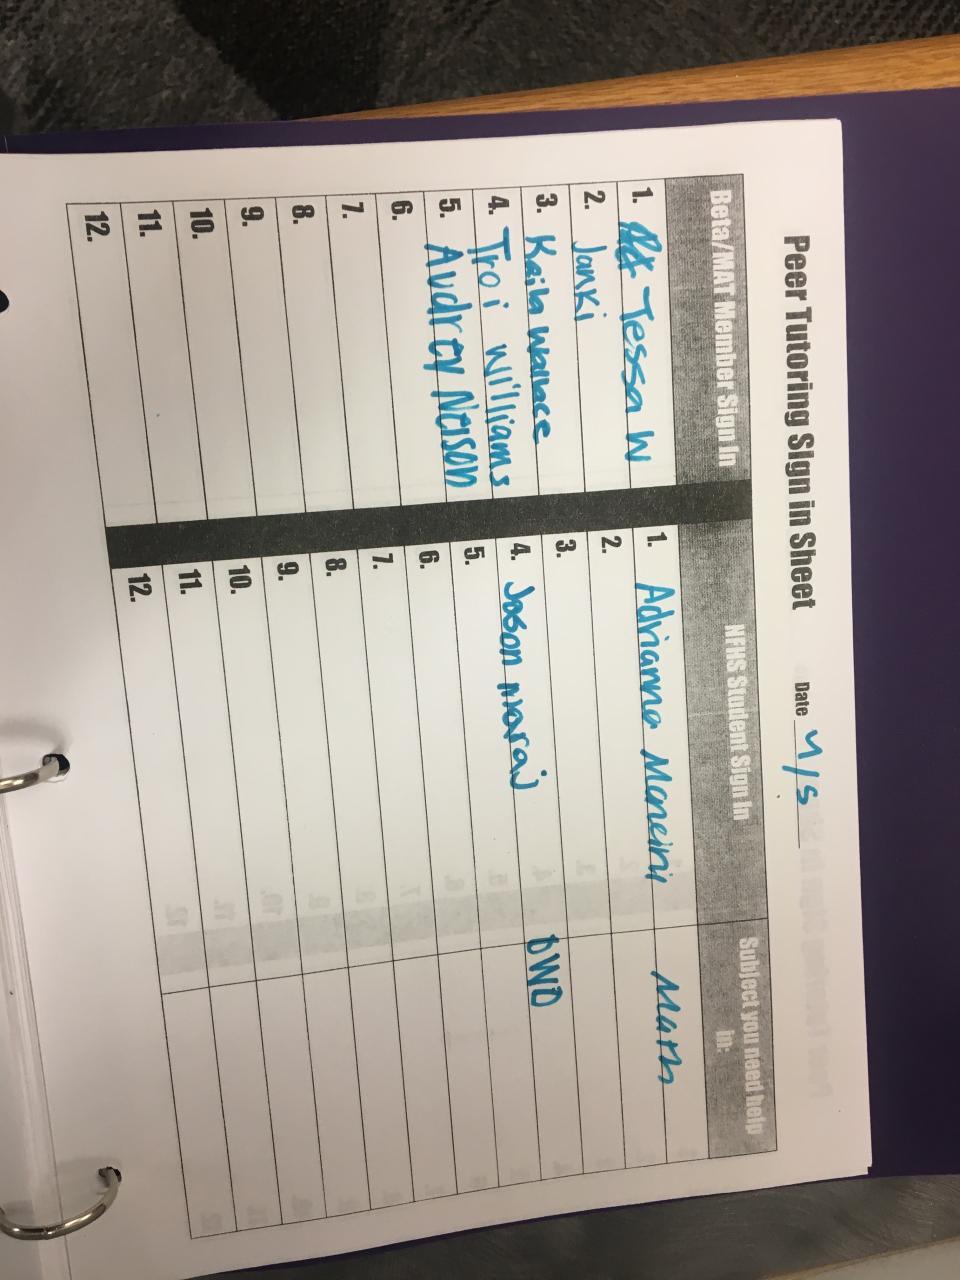 Peer Tutoring Sign in Sheet Date 4/5
Beta/MAT Member Sign In NFHS Student Sign In Subject you need help in:
1. Tessa W 1. Adrianna Mancini Math
2. Janki 2.
3. Keila Wallace 3.
4. Troi Williams 4. Jason Maraj DWD
5. Audrey Nelson 5.
6. 6.
7. 7.
8. 8.
9. 9.
10. 10.
11. 11.
12. 12.